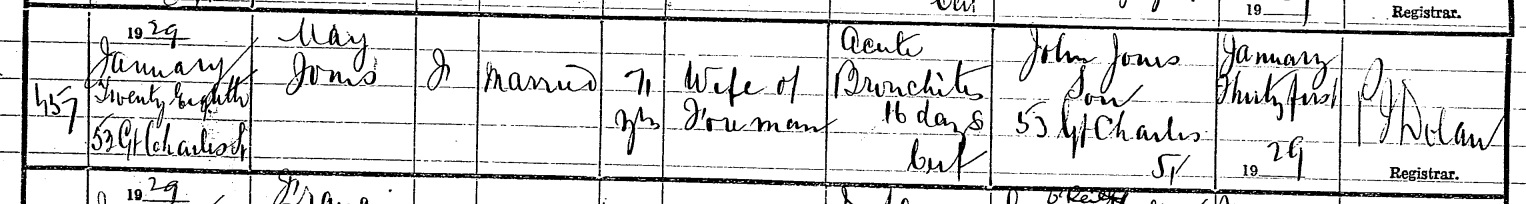 19
Registrar.
457
1929
January
Twenty Eighth
53 Gt Charles St
May
Jones
F
Married
71
yrs
Wife of
Foreman
Acute
Bronchitis
16 days
Cert
John Jones
Son
53 Gt Charles
St
January
Thirty first
1929
P J Dolan
Registrar.
1929